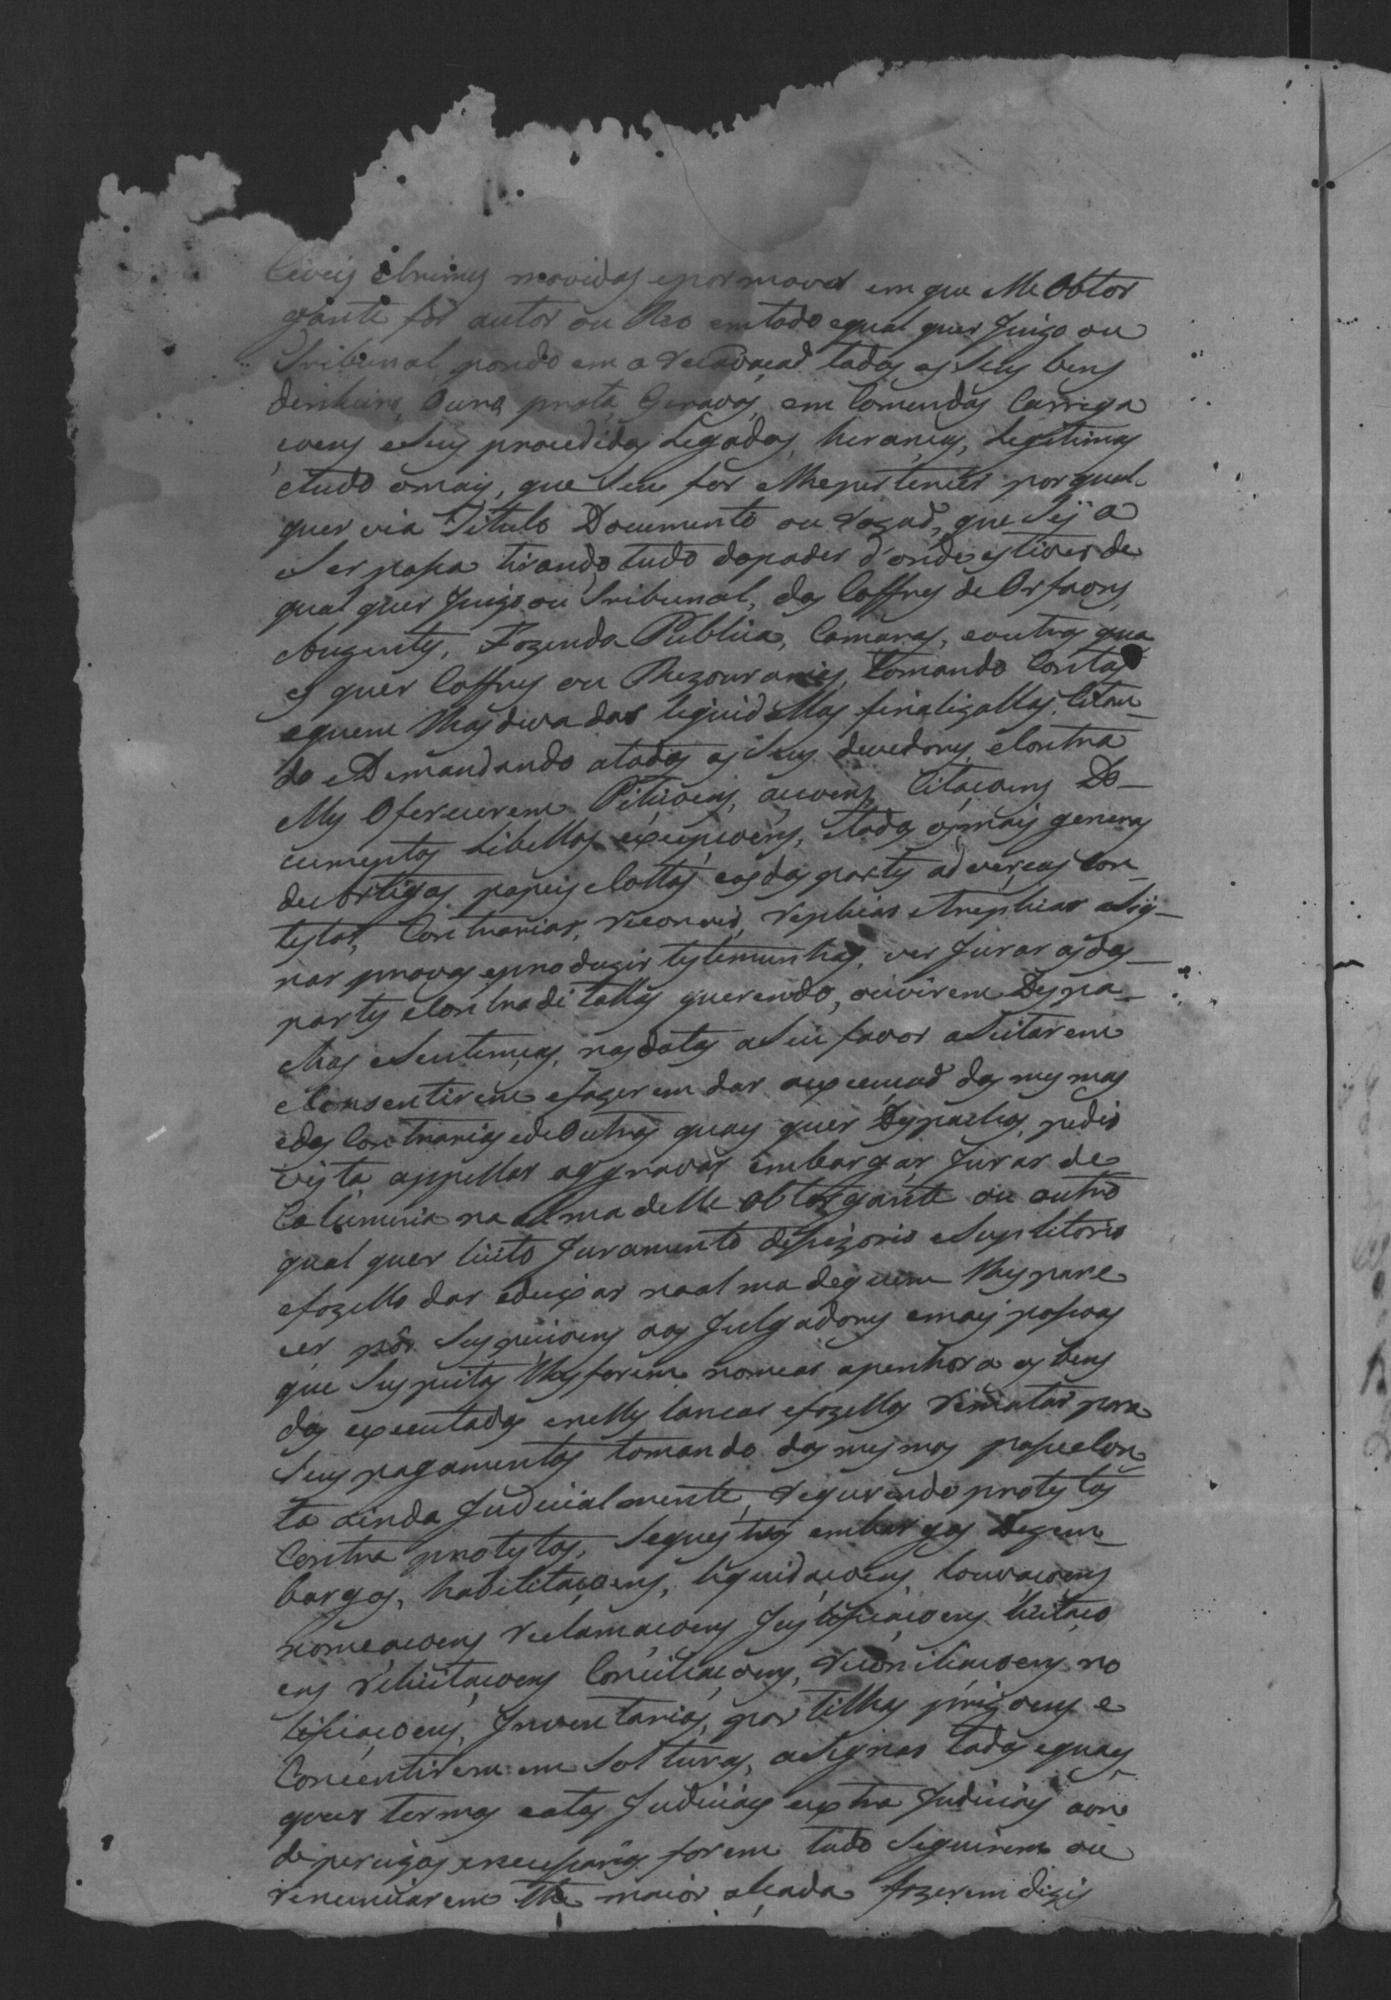 Civeis eCrimes movidas epor mover em que elle Obtor
gante for autor ou Reo emtodo equal quer Juizo ou
Tribunal, pondo em a recadaçaõ todos os Seus bens
dinheiro, Ouro, prata, Escravos, em Comendas Carrega
coens eSeus procedidos Legados, heranças, Legitimas
etudo omais, que Seu for elhepertencer por qual
quer via Titulo Documento ou rezaõ, que Seja
eSer possa tirando tudo dopoder d'onde estiver de
qual quer Juizo ou Tribunal, dos Coffres de Orfaons
Auzentes, Fazenda Publica, Camaras, eoutros qua
es quer Coffres ou Thezourarias, tomando Contas
aquem lhas deva dar liquidallas finalizallas, Citan
do eDemandando atodos os Seus devedores, eContra
elles Oferecerem Petiçoens, acçoens, Citaçoens Do
cumentos Libellos excepçoens, etodos osmais generos
deArtigos papeis eCottas, eosdas partes adverças Con
testar, Contrariar, reconvir, replicar etreplicar aSig
nar provas eproduzir testemunhas, ver Jurar asdas
partes eContraditallas querendo, ouvirem Despa
chos eSentenças, nasdatas aSeu favor aSeitarem
eConsentirem efazerem dar aexecuçaõ das mesmas
edas Contrarias edeOutros quaes quer Despachos, pedir
vista appellar aggravar, embargar, Jurar de
Calumnia na alma delle Obtorgante ou outro
qual quer licito Juramento deSizorio eSupletorio
efazello dar edeixar naalma dequem lhes pare
cer pôr Suspeiçoens aos Julgadores emais pessoas
que Suspeitas lhes forem nomear apenhora os bens
dos executados enelles lancar efazellos rematar para
Seus pagamentos tomando dos mesmos posse eCon
ta ainda Judicialmente, requerendo protestos
Contra protestos, Sequestros embargos Dezem
bargos, habilitaçoens, liquidaçoens, louvaçoens
nomeaçoens reclamaçoens Justificaçoens licitaço
ens relicitaçoens Conciliaçoens, reconciliaçoens no
tificaçoens, Inventarios, partilhas prizoens e
Concentirem em Solturas, aSignar todos equaes
quer termos eatos Judiciaes extra Judiciaes aon
de percizos enecessarios forem tudo Seguirem ou
renunciarem the maior alçada fazerem dizis